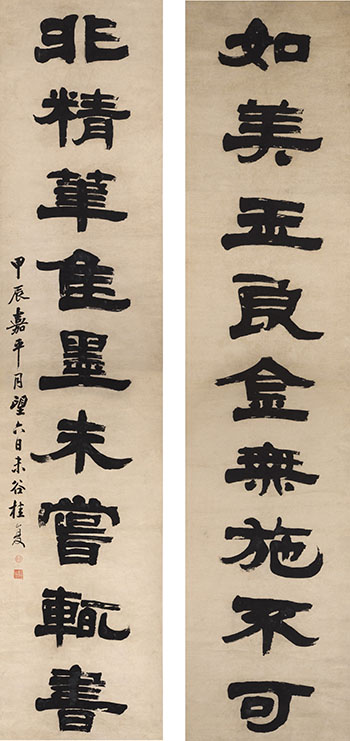 如美玉良金無施不可
非精筆佳墨未嘗輒書
甲辰嘉平月望六日未谷桂馥